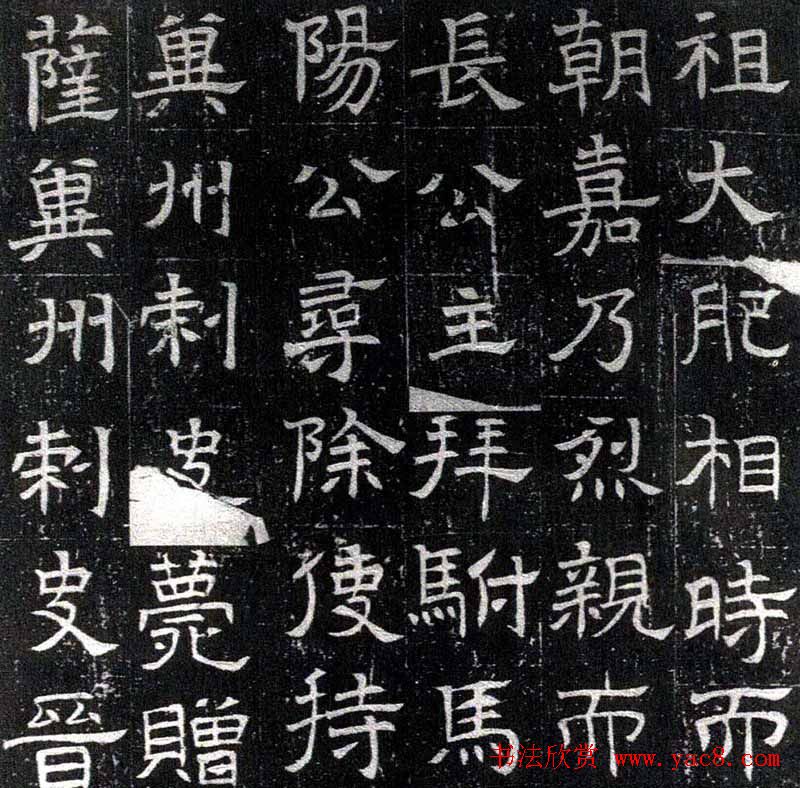 祖大肥相時而
朝嘉乃烈親而
長公主拜駙馬
陽公尋除使持
冀州刺史薨贈
薩冀州刺史晉
书法欣赏 www.yac8.com